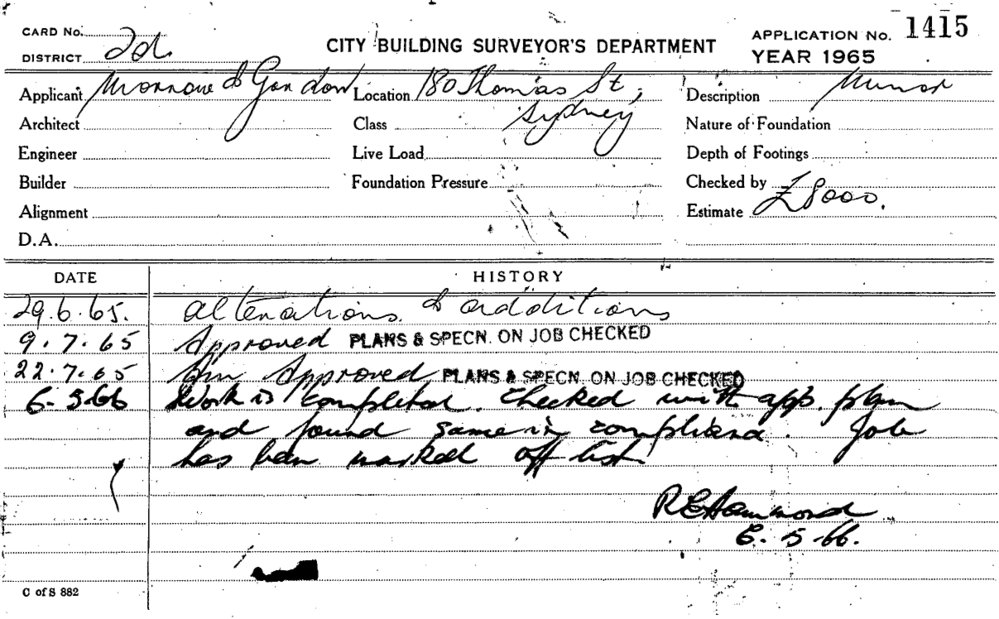 CARD No.
DISTRICT 2d.
CITY BUILDING SURVEYOR'S DEPARTMENT
APPLICATION No. 1415
YEAR 1965
Applicant Morrow & Gordon Location 180 Thomas St, Description Minor
Architect Class Sydney Nature of Foundation
Engineer Live Load Depth of Footings
Builder Foundation Pressure Checked by
Alignment Estimate £8000.
D.A.
DATE HISTORY
29.6.65. alterations & additions
9.7.65 Approved PLANS & SPECN. ON JOB CHECKED
22.7.65 Approved PLANS & SPECN. ON JOB CHECKED
6-5-66 Work is completed. Checked with app. plan
and found same in compliance. Job
has been marked off list
R E Hammond
6.5.66.
C of S 882